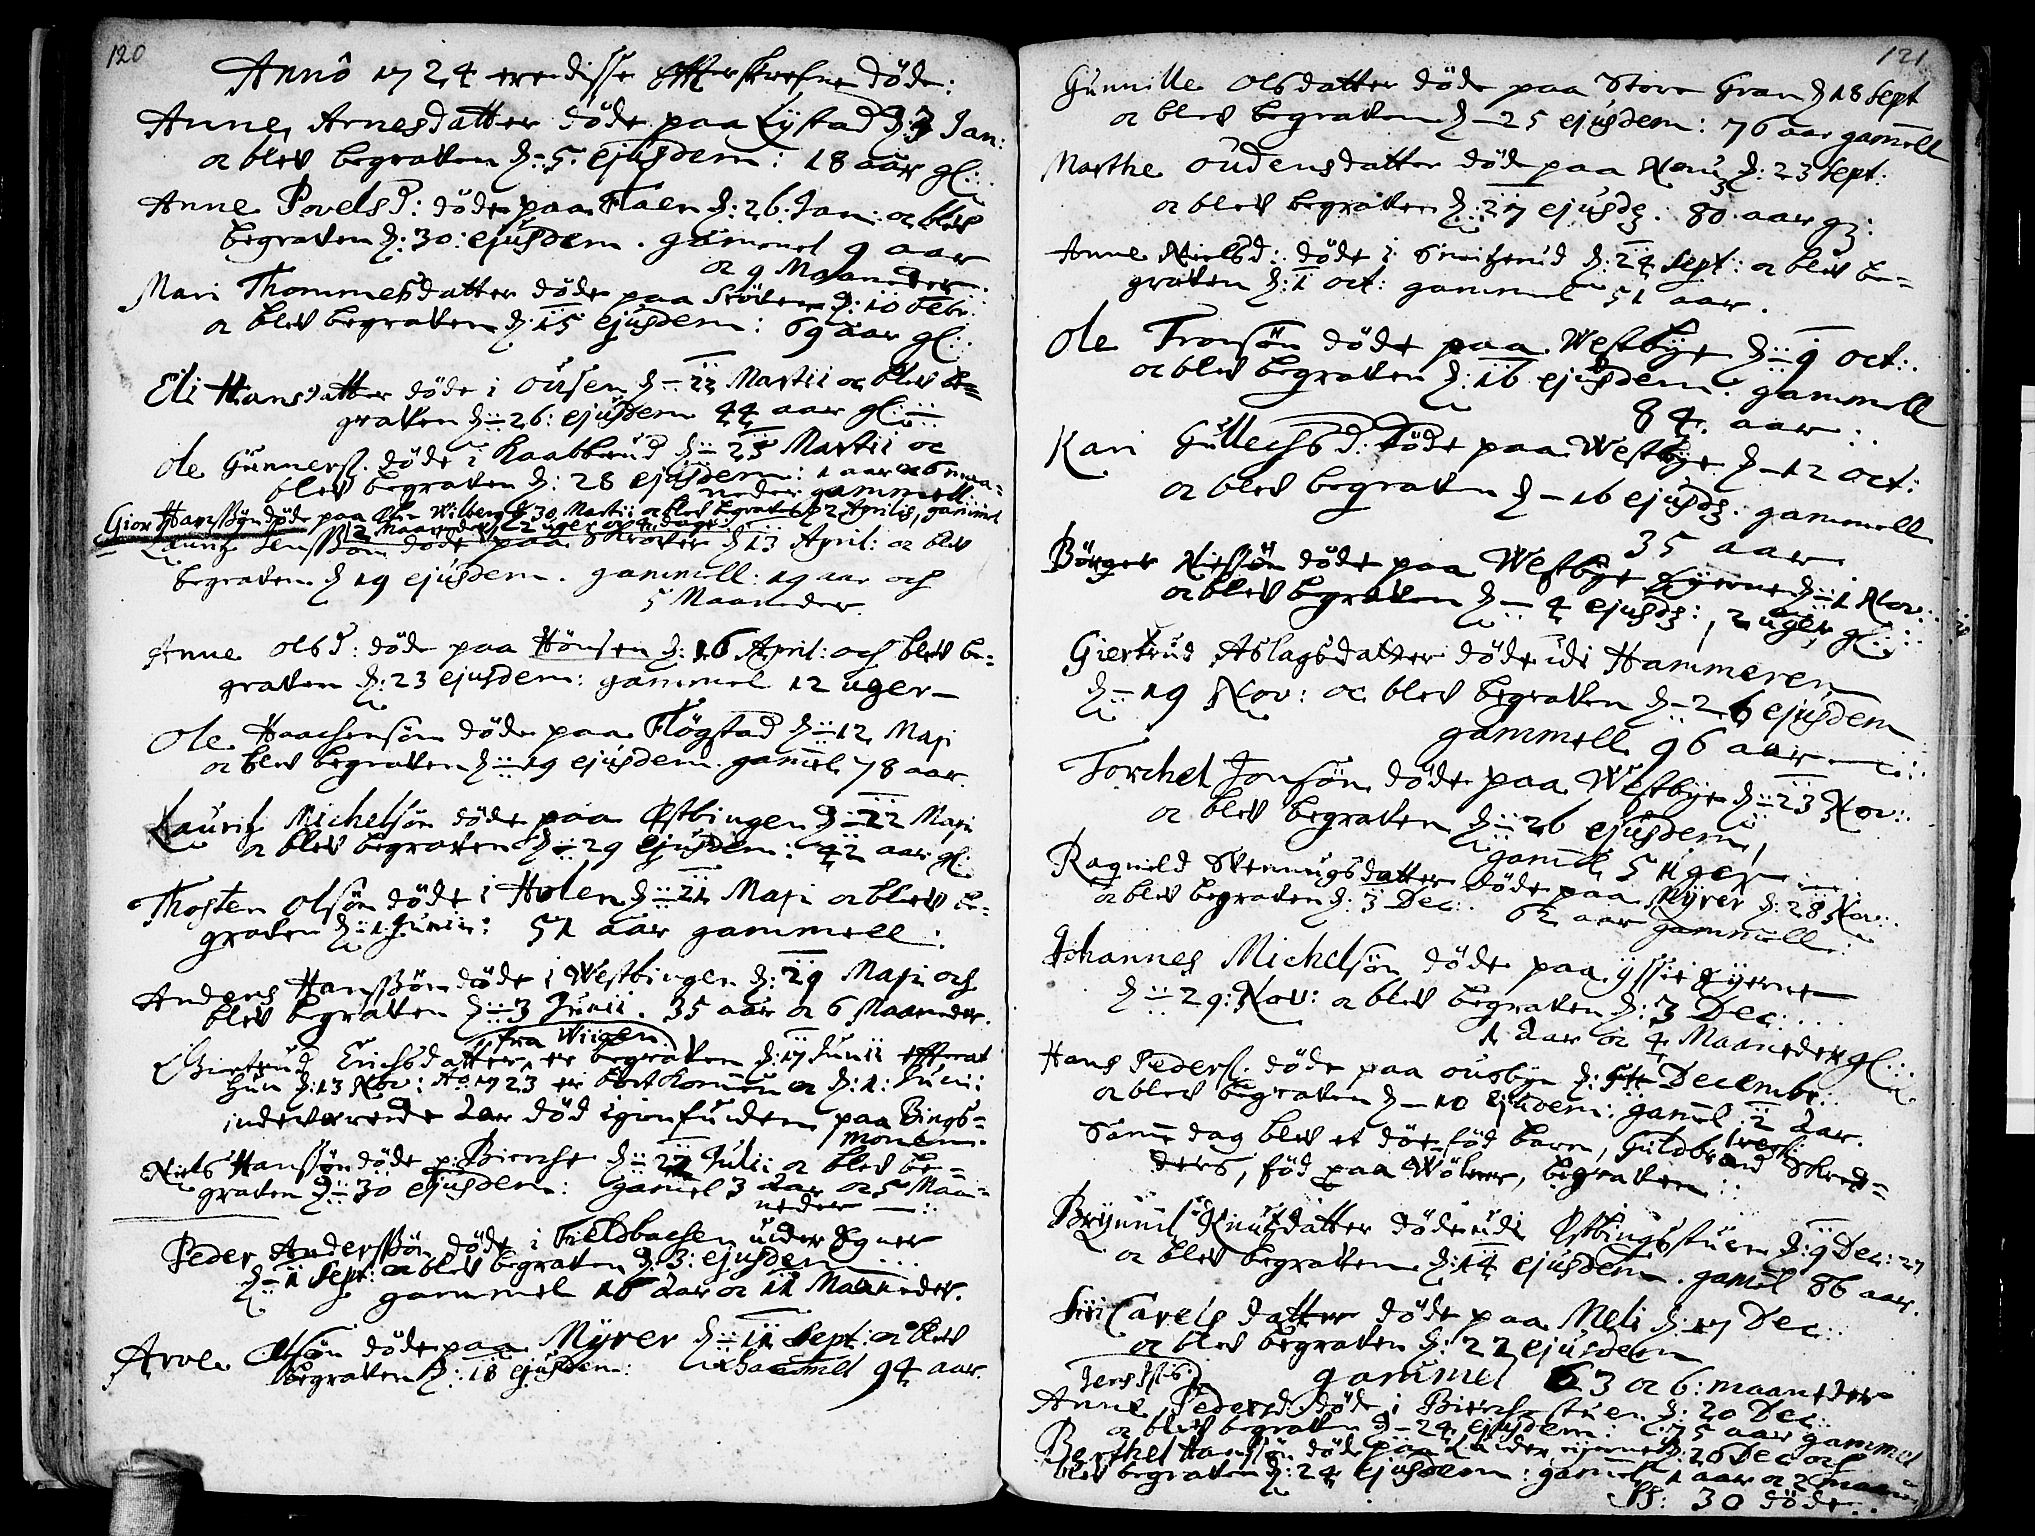 120
Annô 1724 ere disse Effterskrefne døde:
Anne Arnesdatter døde paa Lystad d: 3 Jan:
oc blef begraven d: 5. ejusdem: 18 aar gl:
Anne Povelsd: døde paa Flaen d: 26. Jan: oc blef
begraven d: 30: ejusdem. gammel 9 aar
oc 9 Maaneder.
Mari Thommesdatter døde paa d: 10 Febr:
oc blef begraven d: 15 ejusdem: 69 aar gl:
Eli Hansdatter døde i Ousen d: 22 Martii oc blef be=
graven d: 26: ejusdem 44 aar gl:
Ole Gunners. døde i Kaabberud d: 23 Martii oc
blef begraven d: 28 ejusdem: 1 aar oc 6 maa=
neder gammell.
Gior Hanssøn døde paa Wilberg d 30 Martii oc blef begraven d 2 Aprilis, gammel
2 Maaneder, 2 uger oc 4 dage
Lauritz Jenssøn døde paa d 13 April: oc blef
begraven d 19 ejusdem. gammell: 19 aar och
5 Maaneder.
Anne Olsd: døde paa Hönsen d: 16 April: och blef be=
graven d: 23 ejusdem: gammel 12 uger
Ole Haachensøn døde paa Flögstad d: 12 Maji
oc blef begraven d: 19 ejusdem. gammel 78 aar.
Lauritz Michelsøn døde paa Østbingen d: 22 Maji
oc blef begraven d: 29 ejusdem: 42 aar gl:
Thosten Olsøn døde i Holen d: 21 Maji oc blef be=
graven d: 1 Junii: 51 aar gammell:
Anders Hanssøn døde i Westbingen d: 29 Maji och
blef begraven d: 3 Junii. 35 aar oc 6 Maaneder.
fra Wiigen
Giertrud Erichsdatter, er begraven d: 17 Junii efferat
hun d: 13 Nov: Ao. 1723 er bort kommen oc d: 1: Junii
indeværende Aar død igienfunden paa Bings=
monen.
Niels Hanssøn døde p: Bierche d: 27 Julii oc blef be=
graven d: 30 ejusdem: gammel 3 aar oc 5 Maa=
neder
Peder Anderssøn døde i Fieldbachen under Egner
d: 1 Sept: oc blef begraven d: 3: ejusdem
gammel 16 aar oc 11 Maaneder.
Arve Olsøn døde paa Myrer d: 11 Sept: oc blef
begraven d: 18 ejusdem: Gammel 94 aar.
121
Gunnille Olsdatter døde paa Store Gran d 18 Sept
oc blef begraven d 25 ejusdem: 76 aar gammell
Marthe Oudensdatter døde paa d: 23 Sept:
oc blef begraven d: 27 ejusd: 80 aar g:
Anne Nielsd: døde i d: 24 Sept: oc blef be=
graven d: 1 oct: gammel 51 aar.
Ole Tronsøn døde paa Westbye d: 9 oct:
oc blef begraven d: 16 ejusdem. gammell
84. aar:
Kari Gullechsd: døde paa Westbye d 12 oct:
oc blef begraven d 16 ejusd: gammell
35 aar
Börger Nilssøn døde paa Westbye Eyerne d: 1 Nov:
oc blef begraven d 4 ejusd:, 2 uger gl:
Giertrud Aslagsdatter døde udi Hammeren
d 19 Nov: oc blef begraven d 26 ejusdem
gammell 96 aar
Torchel Jonsøn døde paa Westbye d 23 Nov:
oc blef begraven d: 26 ejusdem,
gammel 5 uger
Ragnild Steenugsdatter døde paa Myrer d: 28 Nov:
oc blef begraven d: 3 Dec: 62 aar gammell:
Johannes Michelsøn døde paa Eyerne
d: 29: Nov: oc blef begraven d: 3 Dec:
1 aar oc 4 Maaneder gl:
Hans Peders. døde paa Ousbye d: 5te Decembr:
oc blef begraven d 10 ejusdem: gammel 2 aar.
Samme dag blef et død fød barn, Guldbrand Skred=
ders, fød paa Wölner, begraven:
Brynnil Knutzdatter døde udi Østbingsstuen d: 9 Dec: 27
oc blef begraven d: 14 ejusdem. gammel 86 aar.
Siri Carels datter døde paa Meli d: 17 Dec:
oc blef begraven d: 22 ejusdem
gammel 63 oc 6: maaneder
Anne Pedersd: døde i Bierche stuen d: 20 Dec:
oc blef begraven d 24 ejusdem: 75 aar gammel
Berthel Hanssøn døde paa d: 20 Dec och
blef begraven d: 24 ejusdem: gammel 1 aar oc 2
30 døde.